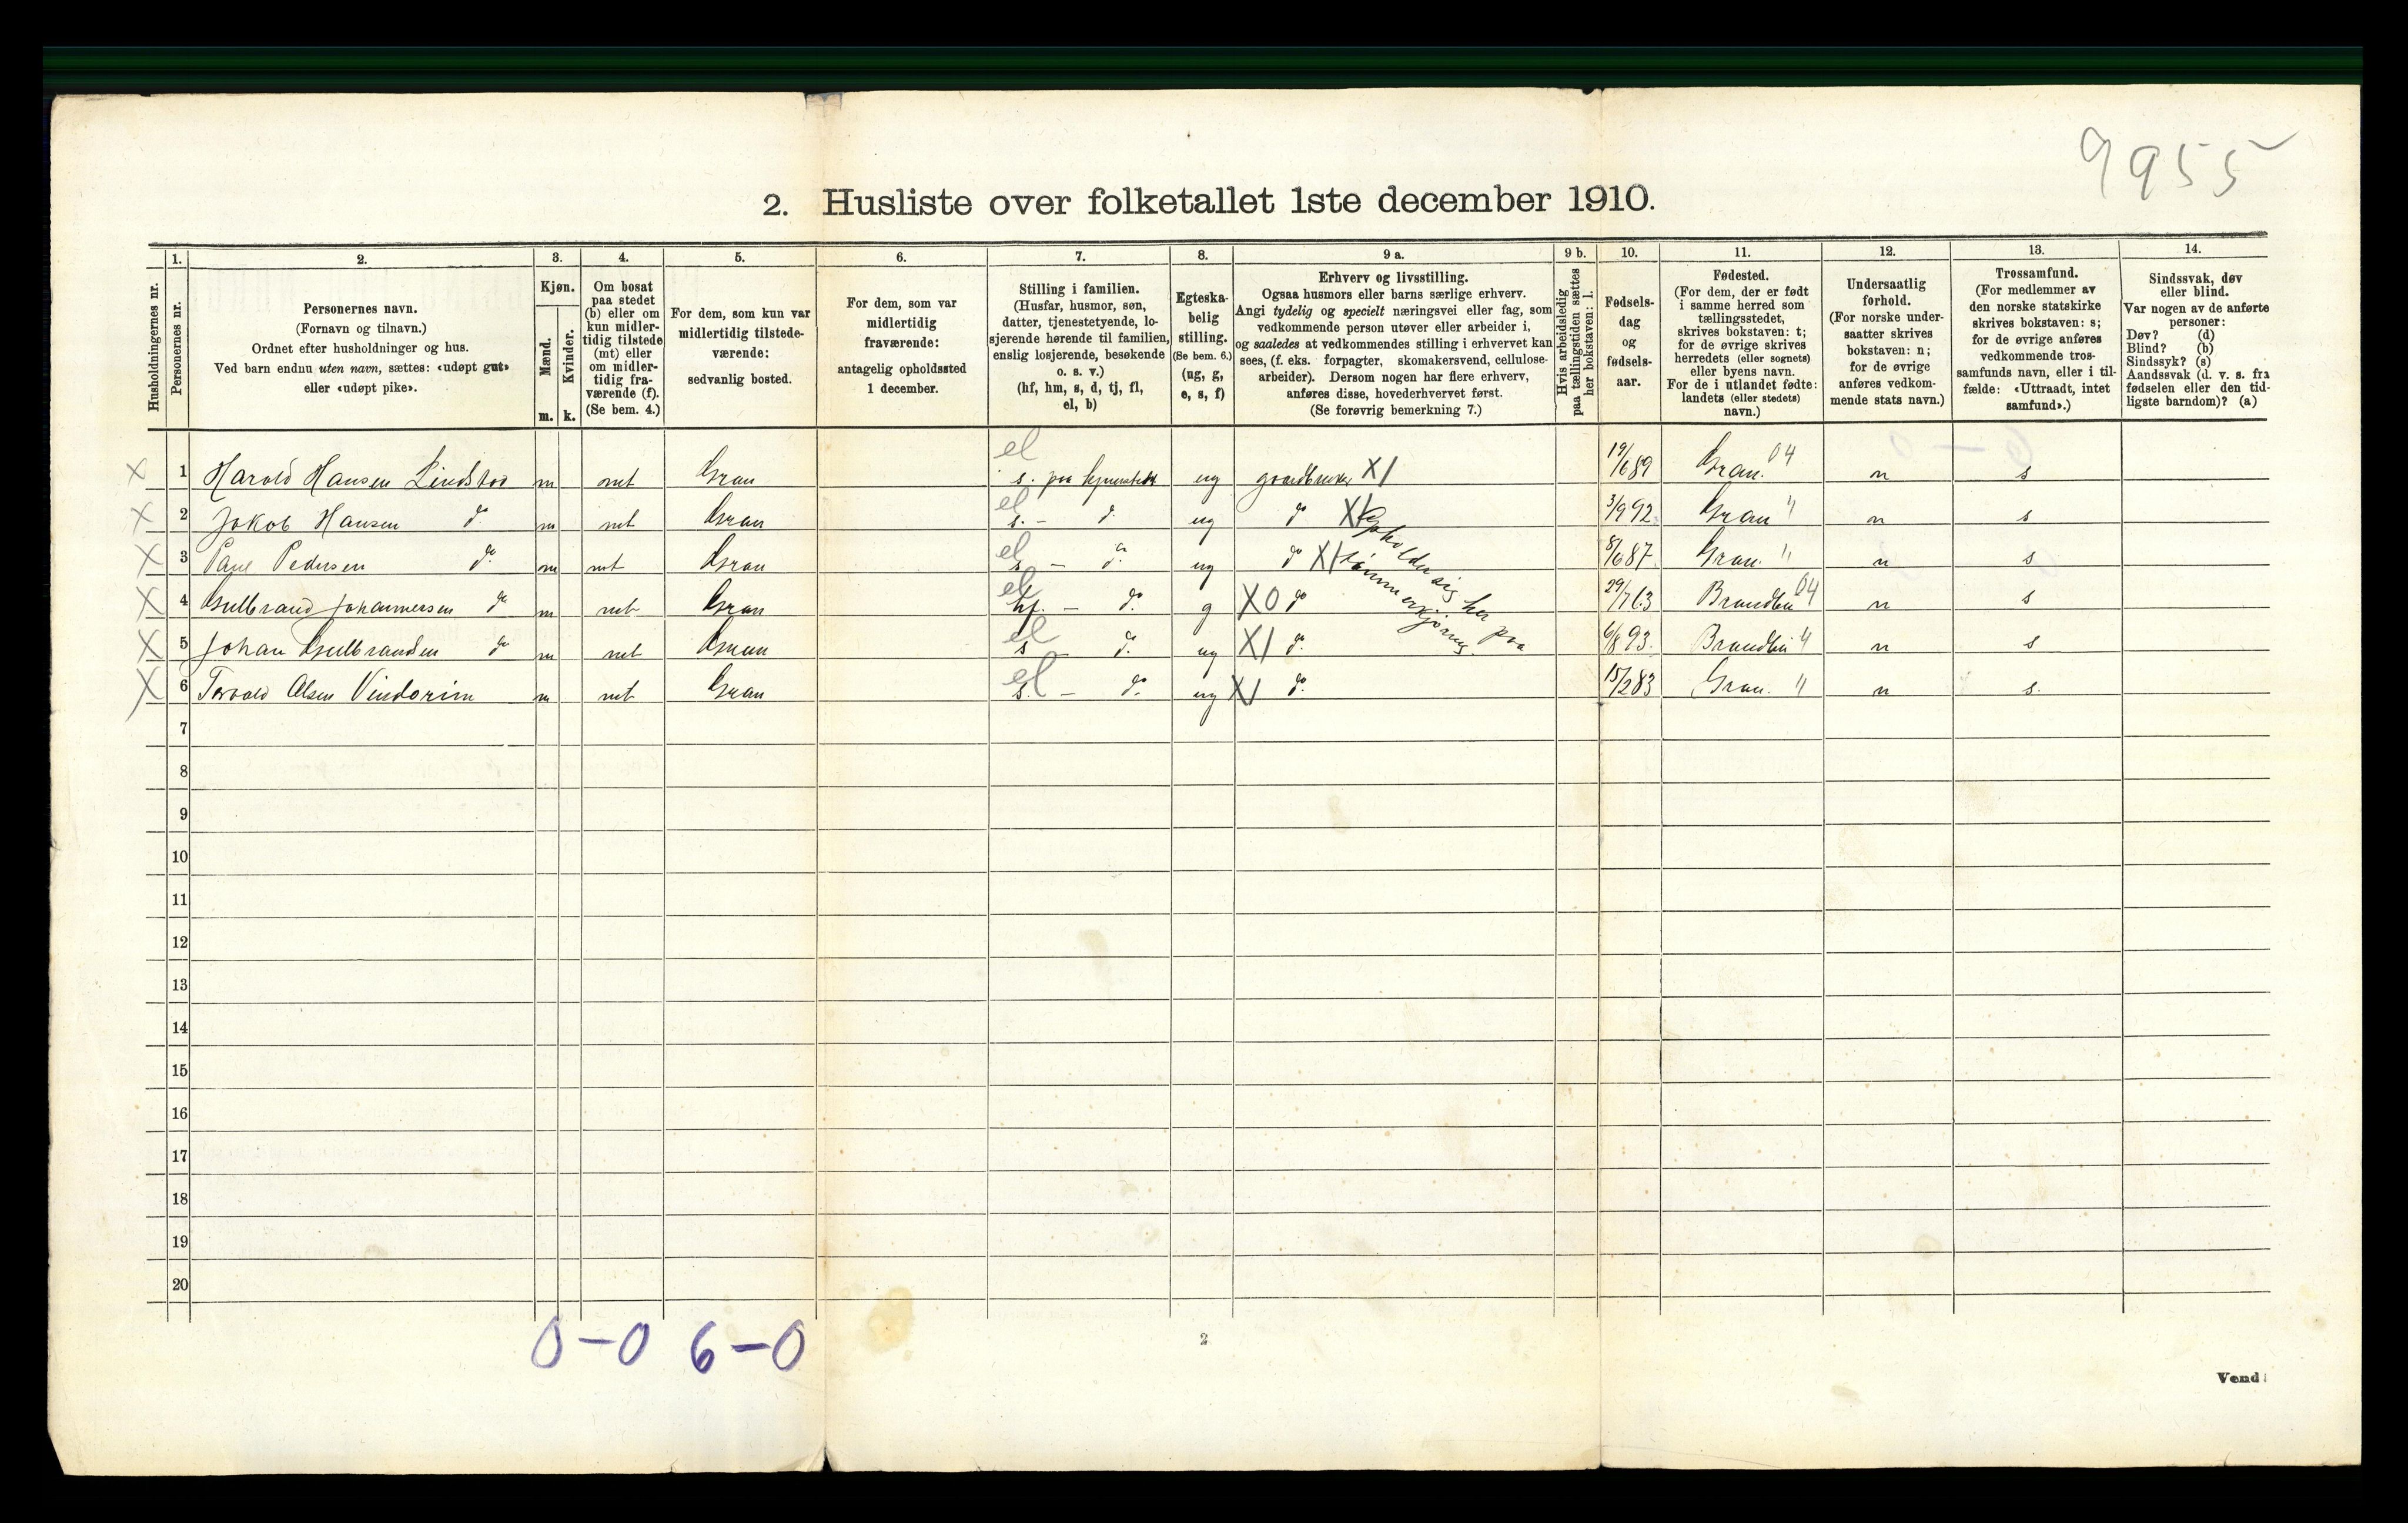 9955
2. Husliste over folketallet 1ste december 1910.
1. 2. 3. 4. 5. 6. 7. 8. 9 a. 9 b. 10. 11. 12. 13. 14.
Husholdningernes nr.
Personernes nr.
Personernes navn.
(Fornavn og tilnavn.)
Ordnet efter husholdninger og hus.
Ved barn endnu uten navn, sættes: «udøpt gut»
eller «udøpt pike».
Kjøn.
Mænd.
Kvinder.
m. k.
Om bosat
paa stedet
(b) eller om
kun midler-
tidig tilstede
(mt) eller
om midler-
tidig fra-
værende (f).
(Se bem. 4.)
For dem, som kun var
midlertidig tilstede-
værende:
sedvanlig bosted.
For dem, som var
midlertidig
fraværende:
antagelig opholdssted
1 december.
Stilling i familien.
(Husfar, husmor, søn,
datter, tjenestetyende, lo-
sjerende hørende til familien,
enslig losjerende, besøkende
o. s. v.)
(hf, hm, s, d, tj, fl,
el, b)
Egteska-
belig
stilling.
(Se bem. 6.)
(ug, g,
e, s, f)
Erhverv og livsstilling.
Ogsaa husmors eller barns særlige erhverv.
Angi tydelig og specielt næringsvei eller fag, som
vedkommende person utøver eller arbeider i,
og saaledes at vedkommendes stilling i erhvervet kan
sees, (f. eks. forpagter, skomakersvend, cellulose-
arbeider). Dersom nogen har flere erhverv,
anføres disse, hovederhvervet først.
(Se forøvrig bemerkning 7.)
Hvis arbeidsledig
paa tællingstiden sættes
her bokstaven: l.
Fødsels-
dag
og
fødsels-
aar.
Fødested.
(For dem, der er født
i samme herred som
tællingsstedet,
skrives bokstaven: t;
for de øvrige skrives
herredets (eller sognets)
eller byens navn.
For de i utlandet fødte:
landets (eller stedets)
navn.)
Undersaatlig
forhold.
(For norske under-
saatter skrives
bokstaven: n;
for de øvrige
anføres vedkom-
mende stats navn.)
Trossamfund.
(For medlemmer av
den norske statskirke
skrives bokstaven: s;
for de øvrige anføres
vedkommende tros-
samfunds navn, eller i til-
fælde: «Uttraadt, intet
samfund».)
Sindssvak, døv
eller blind.
Var nogen av de anførte
personer:
Døv? (d)
Blind? (b)
Sindssyk? (s)
Aandssvak (d. v. s. fra
fødselen eller den tid-
ligste barndom)? (a)
X 1 Harold Hansen m mt Gran el s. paa ug gaardbruker X1 19/6 89 Gran. 04 n s
X 2 Jakob Hansen do m mt Gran el s. - do ug do X1 3/9 92 Gran " n s
X 3 Paul Pedersen do m mt Gran el s - do ug do X1 8/6 87 Gran. " n s
X 4 Gulbrand Johannesen do m mt Gran el hf. - do g X0 do 29/7 63 Brandbu 04 n s
X 5 Johan Gulbrandsen do m mt Gran el s - do ug X1 do 6/8 93. Brandbu " n s
X 6 Torvald Olsen Vindorim m mt Gran el s. - do ug X1 do 15/2 83 Gran. " n s.
Opholder sig her paa
tømmerkjøring
7
8
9
10
11
12
13
14
15
16
17
18
19
20
0-0 6-0
2
Vend!